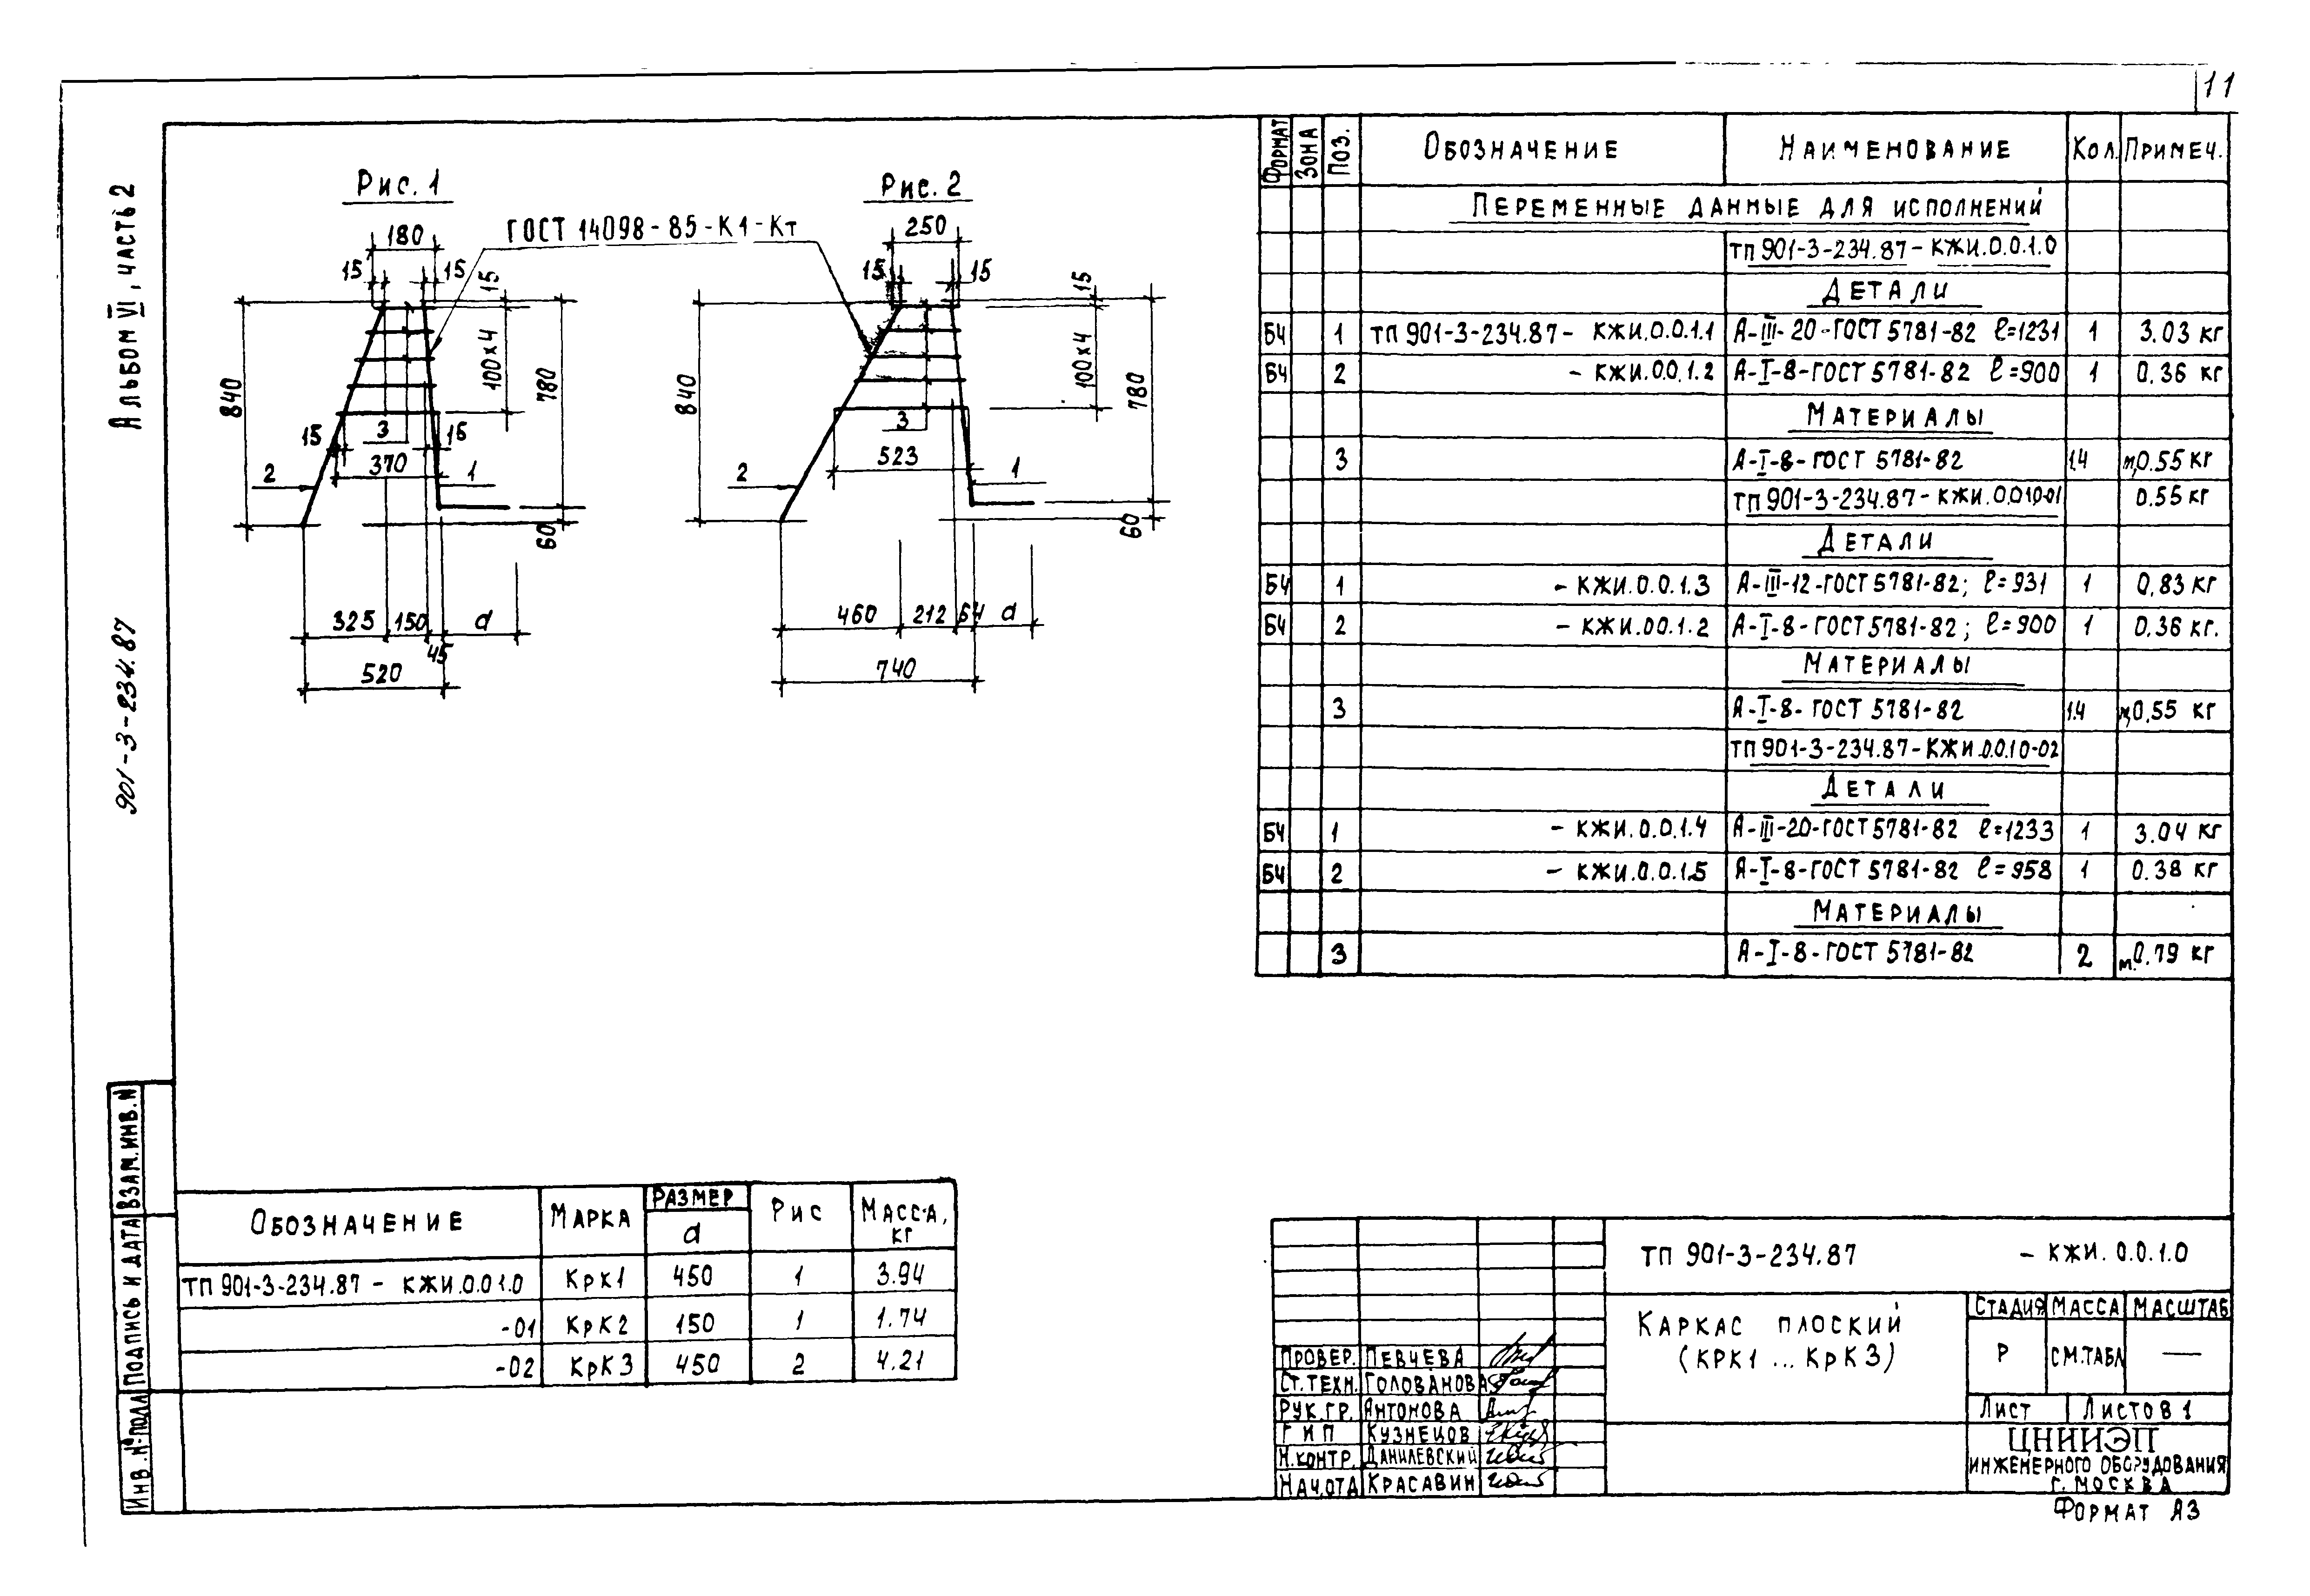 11
Альбом VI, часть 2
901-3-234.87
Рис. 1
Рис. 2
ГОСТ 14098-85-К1-Кт
180
15
15
15
840
100х4
780
3
15
15
370
2
1
60
325
150
d
45
520
250
15
15
15
840
100х4
780
3
523
2
1
60
460
212
64
d
740
Формат
Зона
Поз.
Обозначение
Наименование
Кол.
Примеч.
Переменные данные для исполнений
ТП 901-3-234.87-КЖИ.0.0.1.0
Детали
БЧ 1 ТП 901-3-234.87- КЖИ.0.0.1.1 А-III-20-ГОСТ 5781-82 ℓ=1231 1 3.03 кг
БЧ 2 - КЖИ.0.0.1.2 А-I-8-ГОСТ 5781-82 ℓ=900 1 0.36 кг
Материалы
3 А-I-8-ГОСТ 5781-82 1.4 м,0.55 кг
ТП 901-3-234.87-КЖИ.0.010-01 0.55 кг
Детали
БЧ 1 - КЖИ.0.0.1.3 А-III-12-ГОСТ 5781-82; ℓ=931 1 0,83 кг
БЧ 2 - КЖИ.00.1.2 А-I-8-ГОСТ 5781-82; ℓ=900 1 0.36 кг.
Материалы
3 А-I-8-ГОСТ 5781-82 1.4 м,0.55 кг
ТП 901-3-234.87-КЖИ.0.0.10-02
Детали
БЧ 1 - КЖИ.0.0.1.4 А-III-20-ГОСТ 5781-82 ℓ=1233 1 3.04 кг
БЧ 2 - КЖИ.0.0.1.5 А-I-8-ГОСТ 5781-82 ℓ=958 1 0.38 кг
Материалы
3 А-I-8-ГОСТ 5781-82 2 м.0.79 кг
Обозначение Марка Размер d Рис Масса, кг
ТП 901-3-234.87 - КЖИ.0.01.0 КрК1 450 1 3.94
-01 КрК2 150 1 1.74
-02 КрК3 450 2 4.21
Взам.инв.N
Подпись и дата
Инв.№подл
ТП 901-3-234.87 - КЖИ. 0.0.1.0
Каркас плоский
(КРК1 ... КрК3)
Стадия Масса Масштаб
Р См.табл —
Лист Листов 1
ЦНИИЭП
инженерного оборудования
г. Москва
Провер. Певчева
Ст.техн. Голованова
Рук.гр. Антонова
ГИП Кузнецов
Н.контр. Данилевский
Нач.отд Красавин
Формат А3